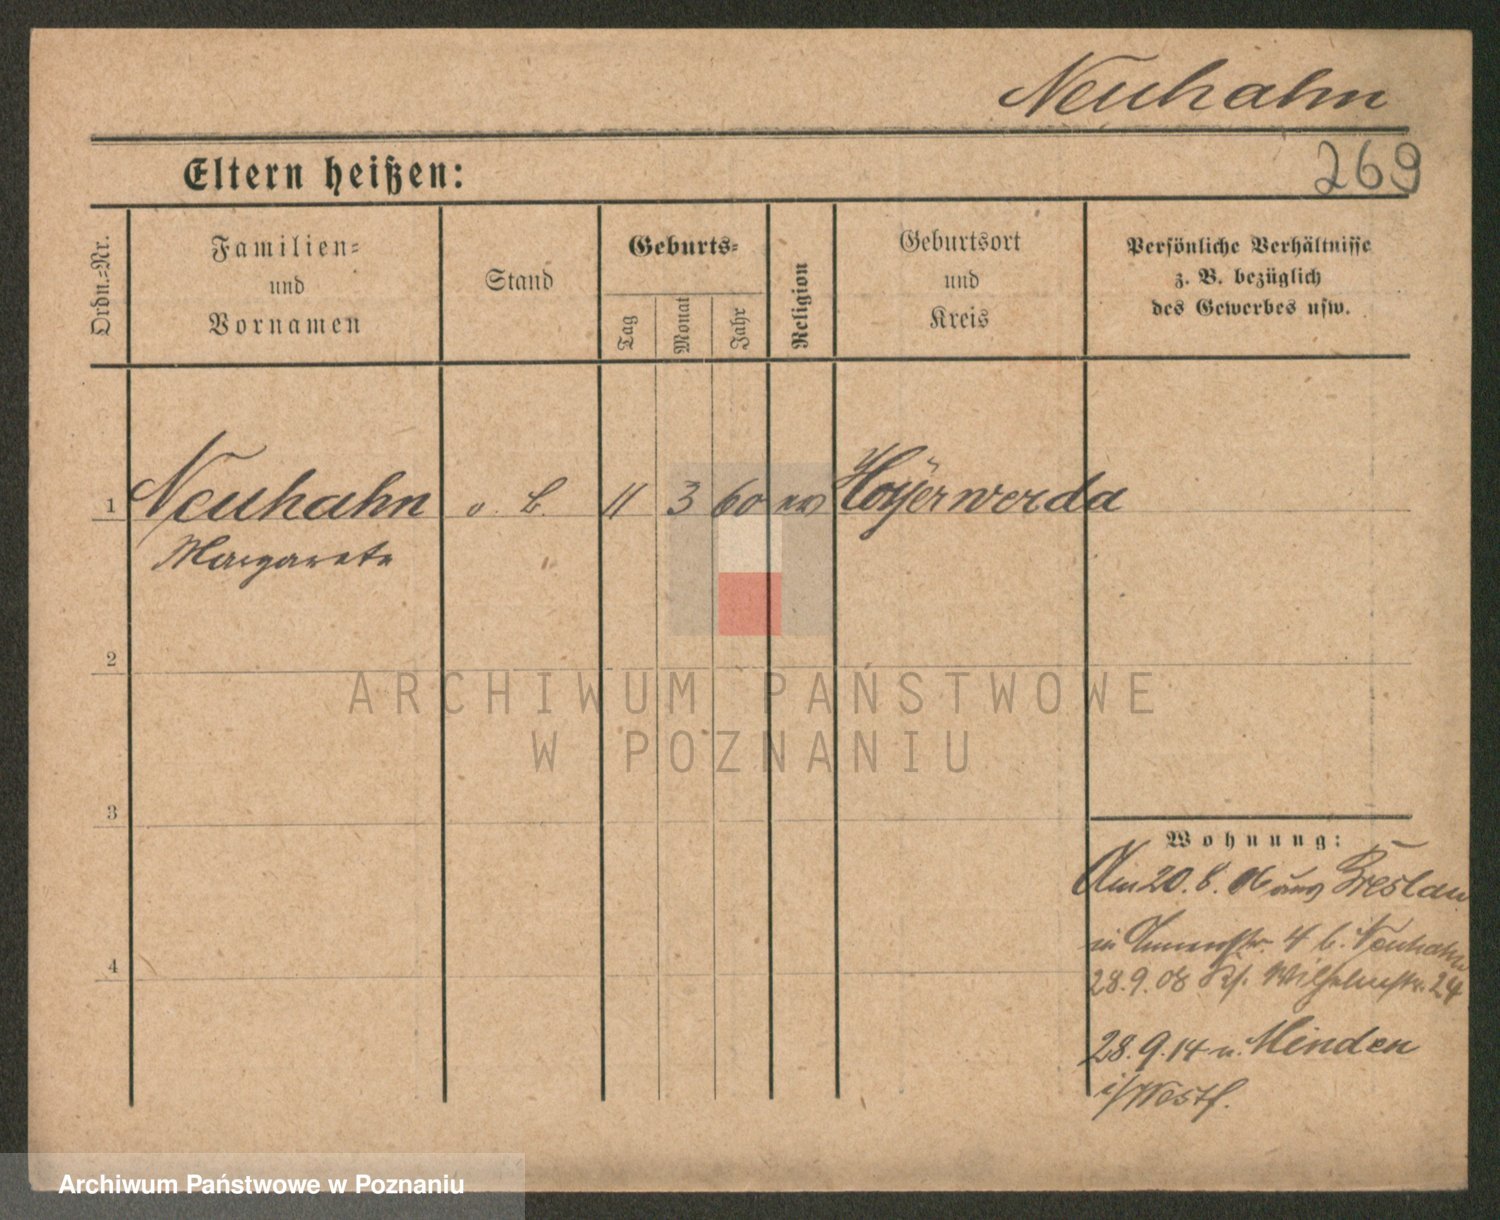 Neuhahn
Eltern heißen:
269
Ordn.=Nr.
Familien=
und
Vornamen
Stand
Geburts=
Tag
Monat
Jahr
Religion
Geburtsort
und
Kreis
Persönliche Verhältnisse
z. B. bezüglich
des Gewerbes usw.
1 Neuhahn o. B. 11 3 60 ev Hoyerwerda
Margarete
2
3
4
Wohnung:
Am 20. 8. 06 aus Breslau
in 4 b. Neuhahn
28. 9. 08 Wilhelmstr. 24
28. 9. 14 n. Minden
i/Westf.
ARCHIWUM PAŃSTWOWE
W POZNANIU
Archiwum Państwowe w Poznaniu